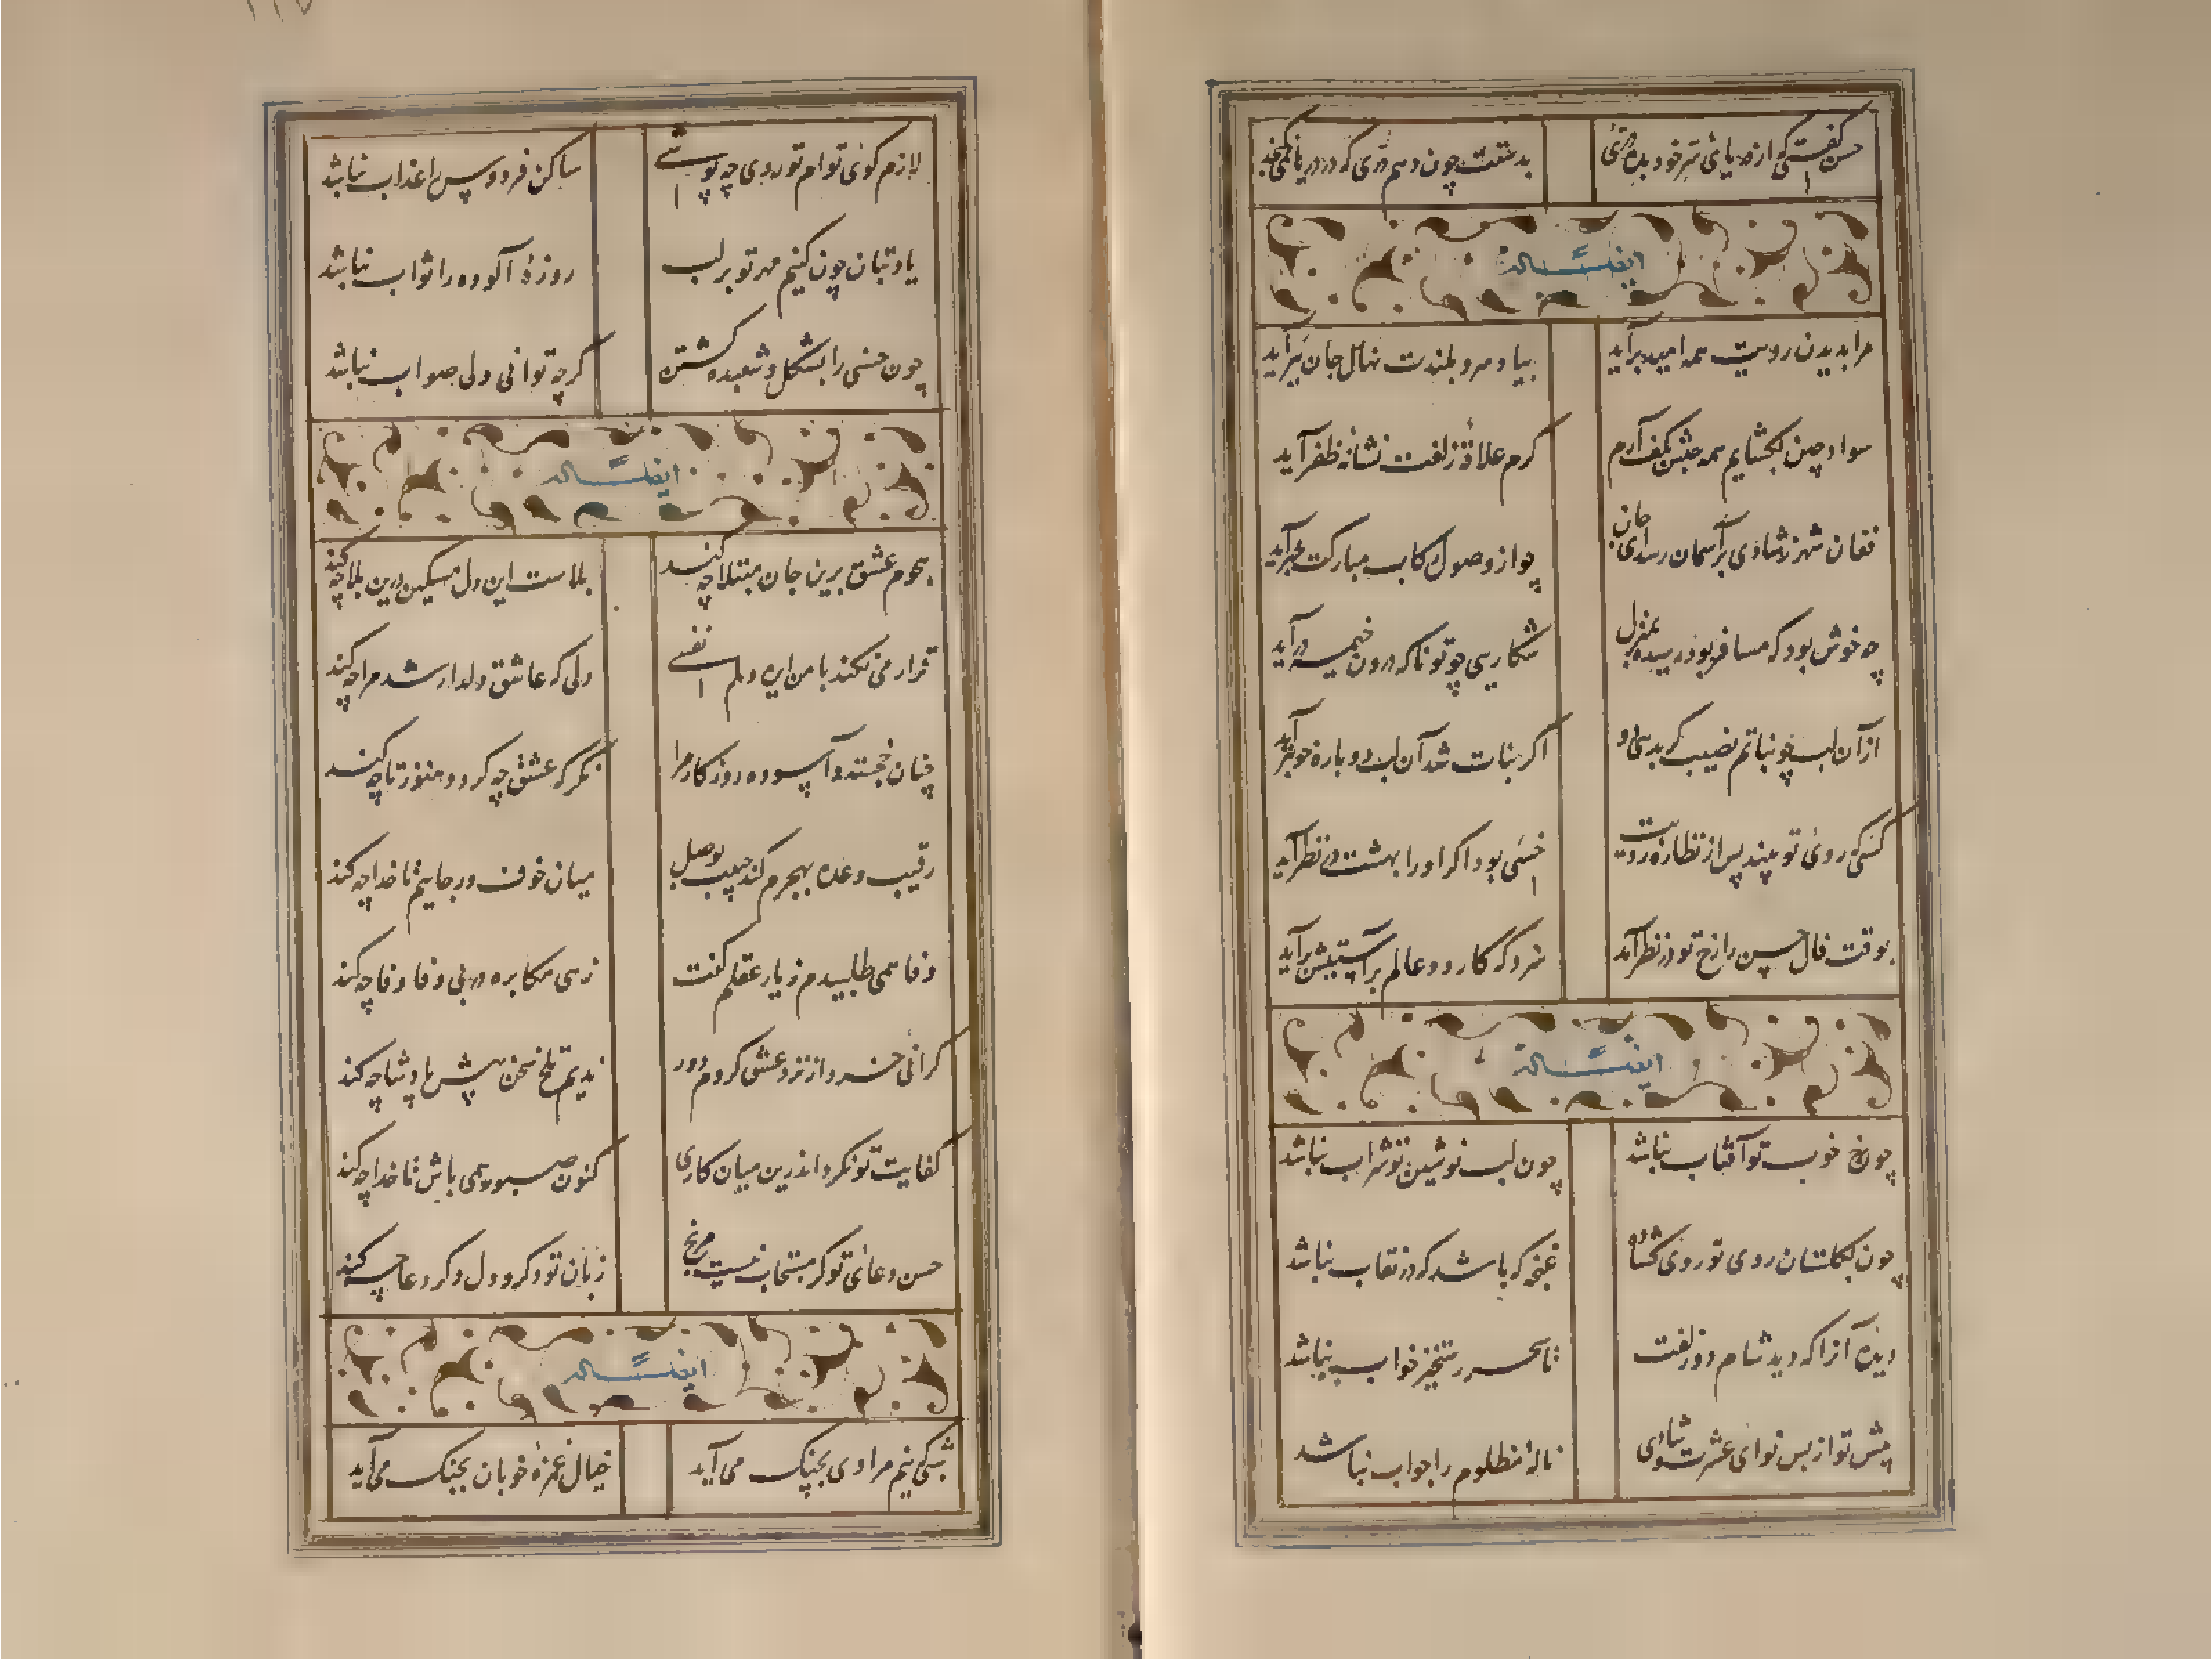 حسن گفتی که از دریای شعر خود بده دری
بدستت چون دهم دری که در دریا نمی‌گنجد
ایضا له
مرا بدیدن رویت همه امید برآید
بیا و سرو بلندت نهال جان ببرآید
سواد چین بگشایم همه حبش بکف آرم
کرم علاقهٔ زلفت نشانهٔ ظفر آید
فغان شهر ز شادی بر آسمان رسد ای جان
چو از وصول رکاب مبارکت خبر آید
چه خوش بود که مسافر بود رسیده بمنزل
شکاریی چو تو ناگه درون خیمه درآید
از آن لب چو نباتم نصیب کر بدهی
اکر نبات شد آن لب دوباره خوبتر آید
کسی که روی تو بیند پس از نظارهٔ رویت
خسی بود اکر او را بهشت در نظر آید
بوقت فال حسن را رخ تو در نظر آمد
سزد که کار دو عالم بر آستینش برآید
ایضا له
چون رخ خوب تو آفتاب نباشد
چون لب نوشین تو شراب نباشد
چون بگلستان روی تو روی گشاده
غنچه که باشد که در نقاب نباشد
دیدهٔ آنرا که دید شام دو زلفت
تا سحر رستخیز خواب نباشد
پیش تو از بس نوای عشرت و شادی
نالهٔ مظلوم را جواب نباشد
لازم کوی توام تو روی چه پوشی
ساکن فردوس را عذاب نباشد
یاد بتان چون کنیم مهر تو بر لب
روزهٔ آلوده را ثواب نباشد
چون حسنی را بشکل و شعبده کشتن
کرچه توانی ولی صواب نباشد
ایضا له
هجوم عشق برین جان مبتلا چه کند
بلاست این دل مسکین درین بلا چه کند
قرار می نکند با من این دلم نفسی
دلی که عاشق دلدار شد مرا چه کند
چنان خجسته و آسوده روزکار مرا
نکر که عشق چه کرد و هنوز تا چه کند
رقیب وعده بهجرم کند حبیب بوصل
میان خوف و رجاییم تا خدا چه کند
وفا همی طلبیدم ز یار عقلم گفت
زهی مکابره در بی وفا وفا چه کند
کرانی خرد از نزد عشق کردم دور
ندیم تلخ سخن پیش پادشا چه کند
کفایت تو نکرد اندرین میان کاری
کنون صبور همی باش تا خدا چه کند
حسن دعای تو کر مستجاب نیست مرنج
زبان تو دکر و دل دکر دعا چه کند
ایضا له
شبی کنیم مرادی بچنک می‌آید
خیال غمزهٔ خوبان بجنک می‌آید